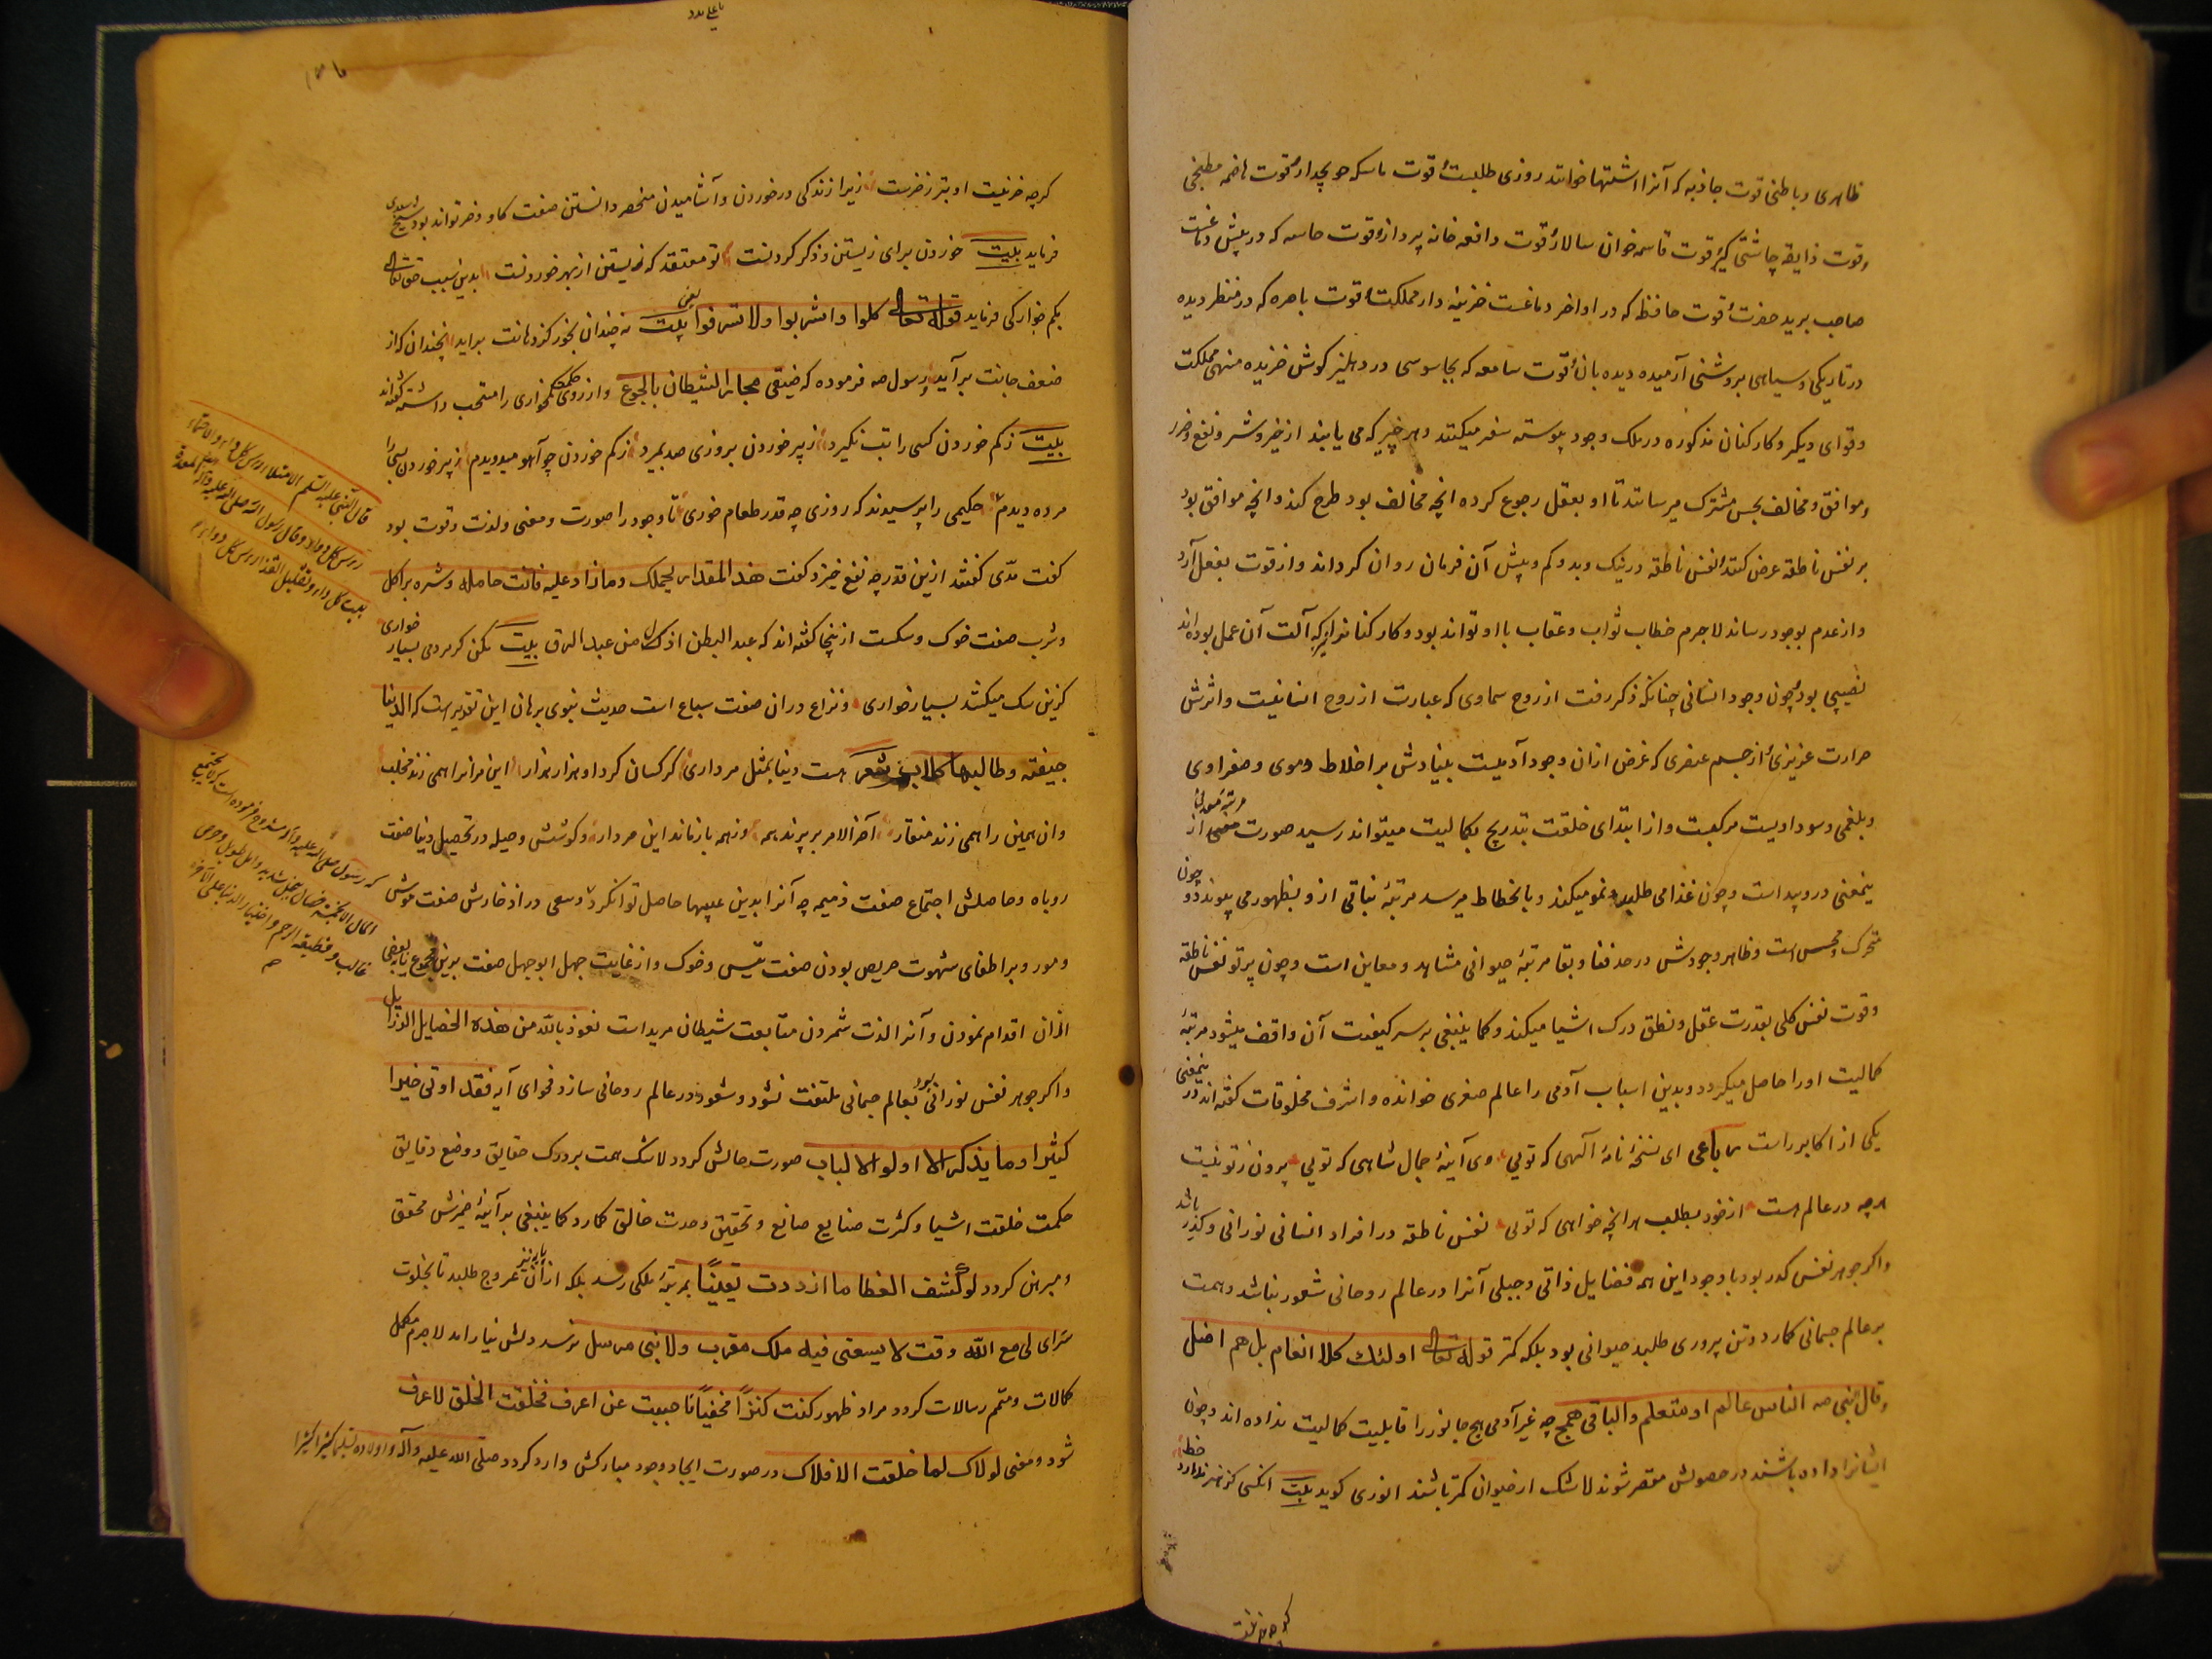 ظاهری و باطنی قوت جاذبه که آنرا اشتها خوانند روزی طلبست قوت ماسکه حویجدار قوت هاضمه مطبخی
وقوت ذایقه چاشنی گیر قوت قاسمه خوان سالار قوت دافعه خانه پرداز و قوت حاسه که در پیش دماغست
صاحب برید حضرت قوت حافظه که در اواخر دماغست خزینه دار مملکت قوت باصره که در منظر دیده
در تاریکی و سیاهی بروشنی آرمیده دیده بان قوت سامعه که بجاسوسی در دهلیز کوش خزیده منهی مملکت
وقوای دیکر و کارکنان مذکوره در ملک وجود پیوسته سفر میکنند و هر خبر که می یابند از خیر و شر و نفع و ضرر
وموافق و مخالف بحس مشترک میرسانند تا او بعقل رجوع کرده انچه مخالف بود طرح کند و انچه موافق بود
بر نفس ناطقه عرض کند نفس ناطقه در نیک و بد و کم و بیش آن فرمان روان کرداند و از قوت بفعل آرد
و از عدم بوجود رساند لاجرم خطاب ثواب و عقاب با او تواند بود و کارکنانرا که آلت آن عمل بوده اند
نصیبی بود چون وجود انسانی چنانکه ذکر رفت از روح سماوی که عبارت از روح انسانیت و اثرش
حرارت غریزی از جسم عنصری که غرض ازان وجود آدمیست بنیادش بر اخلاط دموی و صفراوی
و بلغمی و سوداویست مرکبت و از ابتدای خلقت بتدریج بکمالیت میتواند رسید صورت از مرتبه معدنی
ینمعنی درو پیداست و چون غذا می طلبد و نمو میکند و بانحطاط میرسد مرتبهٔ نباتی ازو بظهور می پیوندد و چون
متحرک و محس است و ظاهر وجودش در صدد فنا و بقا مرتبهٔ حیوانی مشاهد و معاین است و چون پرتو نفس ناطقه
وقوت نفس کلی بقدرت عقل و نطق درک اشیا میکند و کما ینبغی بر سر کیفیت آن واقف میشود مرتبهٔ
کمالیت اورا حاصل میکردد و بدین اسباب آدمی را عالم صغری خوانده و اشرف مخلوقات کفته اند در ینمعنی
یکی از اکابر راست رباعی ای نسخهٔ نامهٔ آلهی که تویی وی آینهٔ جمال شاهی که تویی بیرون ز تو نیست
هرچه در عالم هست از خود بطلب هر انچه خواهی که تویی نفس ناطقه در افراد انسانی نورانی و کدر باشد
واکر جوهر نفس کدر بود با وجود این همه فضایل ذاتی و جبلی آنرا در عالم روحانی شعور نباشد و همت
بر عالم جسمانی کمارد و تن پروری طلبد حیوانی بود بلکه کمتر قوله تعالی اولئک کلا انعام بل هم اضل
وقال النبی صه الناس عالم او متعلم والباقی همج چه غیر آدمی هیچ جانور را قابلیت کمالیت نداده اند و چون
ایشانرا داده باشند در حصولش مقصر شوند لاشک از حیوان کمتر باشند انوری کوید بیت انکس کز هنر ندارد حظ
کرچه خر نیست
یا علی مدد
کرچه خر نیست او بتر ز خرست زیرا زندکی در خوردن و آشامیدن منحصر دانستن صفت کاو و خر تواند بود شیخ سعدی
فرماید بیت خوردن برای زیستن و ذکر کردنست تو معتقد که زیستن از بهر خوردنست بدین سبب حق تعالی
بکم خوارکی فرماید قوله تعالی کلوا واشربوا ولا تسرفوا یعنی بیت نه چندان بخور کز دهانت براید نچندان که از
ضعف جانت برآید و رسول صه فرموده که ضیقی مجاری الشیطان بالجوع و از روی حکمت کمخواری را مستحب داشته کفته اند
بیت ز کم خوردن کسی را تب نکیرد ز پر خوردن بروزی صد بمیرد ز کم خوردن چو آهو میدویدم ز پر خوردن بسی را
مرده دیدم حکیمی را پرسیدند که روزی چه قدر طعام خوری تا وجود را صورت و معنی و لذت و قوت بود
کفت مدّی کفتند ازین قدر چه نفع خیزد کفت هذا المقدار یحملک وما زاد علیه فانت حامله و شره بر اکل
و شرب صفت خوک و سکست ازینجا کفته اند که عبد البطن اذل من عبد الرق بیت مکن کر مردمی بسیار خواری
کزین سک میکشد بسیار خواری و نزاع دران صفت سباع است حدیث نبوی برهان این تقدیرست که الدنیا
جیفة وطالبها کلاب شعر هست دنیا بمثل مرداری کرکسان کرد او هزار هزار این مرانرا همی زند مخلب
وان همین را همی زند منقار آخر الامر بر پرند همه وز همه باز ماند این مردار و کوشش و حیله در تحصیل دنیا صفت
روباه و حاصلش اجتماع صفت ذمیمه چه آنرا بدین عیبها حاصل توان کرد و سعی در ادخارش صفت موش
و مور و بر اطفای شهوت حریص بودن صفت تیس و خوک و از غایت جهل ابوجهل صفت برین مجموع یا ببعضی
ازان اقدام نمودن و آنرا لذت شمردن متابعت شیطان مریدست نعوذ بالله من هذه الخصایل الرذایل
و اکر جوهر نفس نورانی بود بعالم جسمانی ملتفت نشود و شعود در عالم روحانی سازد فحوای آیه فقد اوتی خیرا
کثیرا وما یذکر الا اولوا الالباب صورت حالش کردد لاشک همت بر درک حقایق و وضع دقایق
حکمت خلقت اشیا و کثرت صنایع صانع و تحقیق وحدت خالق کمارد کما ینبغی بر آینهٔ ضمیرش محقق
و مبرهن کردد لو کشف الغطا ما ازددت یقینًا بمرتبهٔ ملکی رسد بلکه ازان پایه نیز عروج طلبد تا بخلوت
سرای لی مع الله وقت لا یسعنی فیه ملک مقرب ولا نبی مرسل نرسد دلش نیارامد لاجرم مکمل
کمالات و متمم رسالات کردد مراد ظهور کنت کنزًا مخفیًا فاحببت عن اعرف فخلقت الخلق لاعرف
شود و معنی لولاک لما خلقت الافلاک در صورت ایجاد وجود مبارکش وارد کردد صلی الله علیه وآله و اولاده تسلیما کثیرا کثیرا
قال النبی علیه السلم الامتلا راس کل داء والاحتماء
راس کل دواء وقال رسول الله صلی الله علیه وآله المعدة
بیت کل داء وتقلیل الغذا راس کل دواء
که رسول صلی الله علیه وآله
المال لا یجتمع الا بخمس خصال بخل شدید وامل طویل وحرص
غالب وقطیعة الرحم واختیار الدنیا علی الاخرة